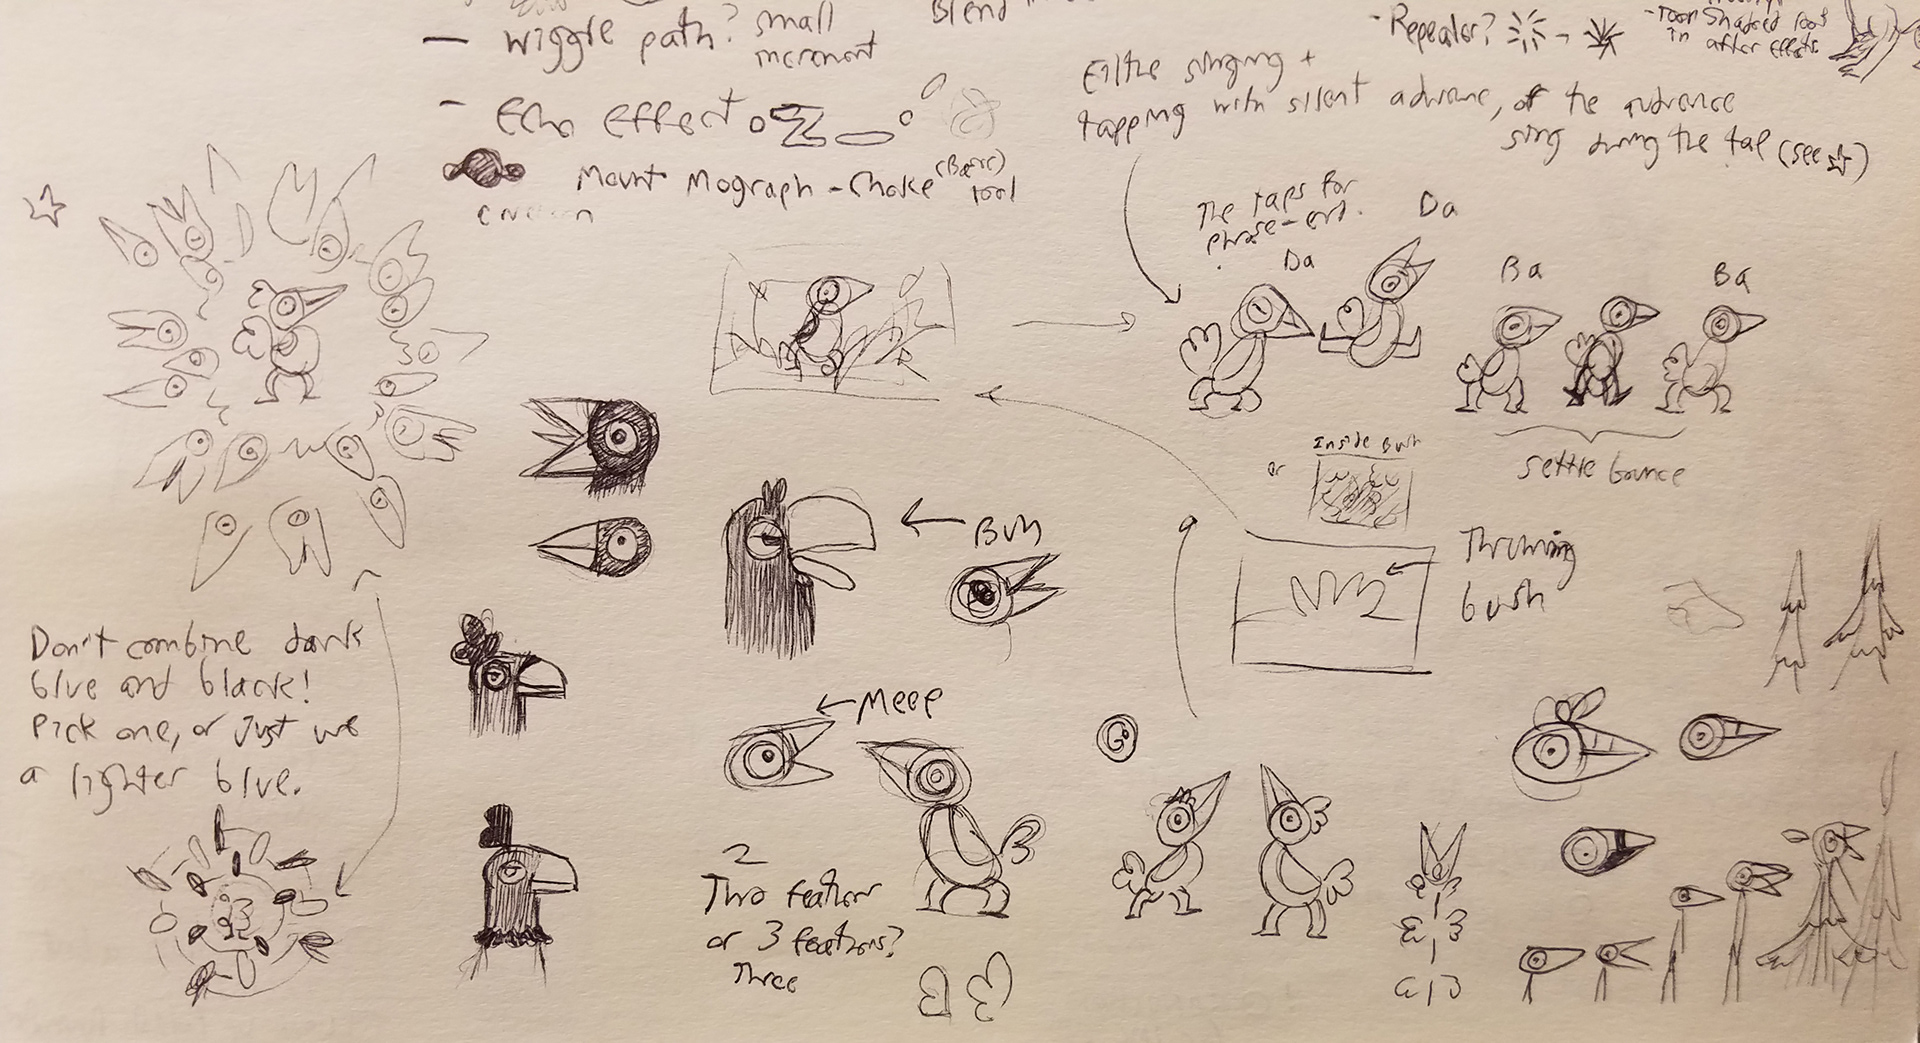 - wiggle path? small
increment
Blend
- Repeater?
- Toon Shaded foot
in after effects
- Echo effect
Mount Mograph - Choke (Basic) tool
Either singing +
tapping with silent advance, or the audience
sing during the tap (see ☆)
The taps for
phrase-end.
Da
Da
Ba
Ba
settle bounce
or
Inside Bush
Throwing
bush
← Buh
← Meep
Don't combine dark
blue and black!
Pick one, or Just use
a lighter blue.
2
Two feathers
or 3 feathers?
Three